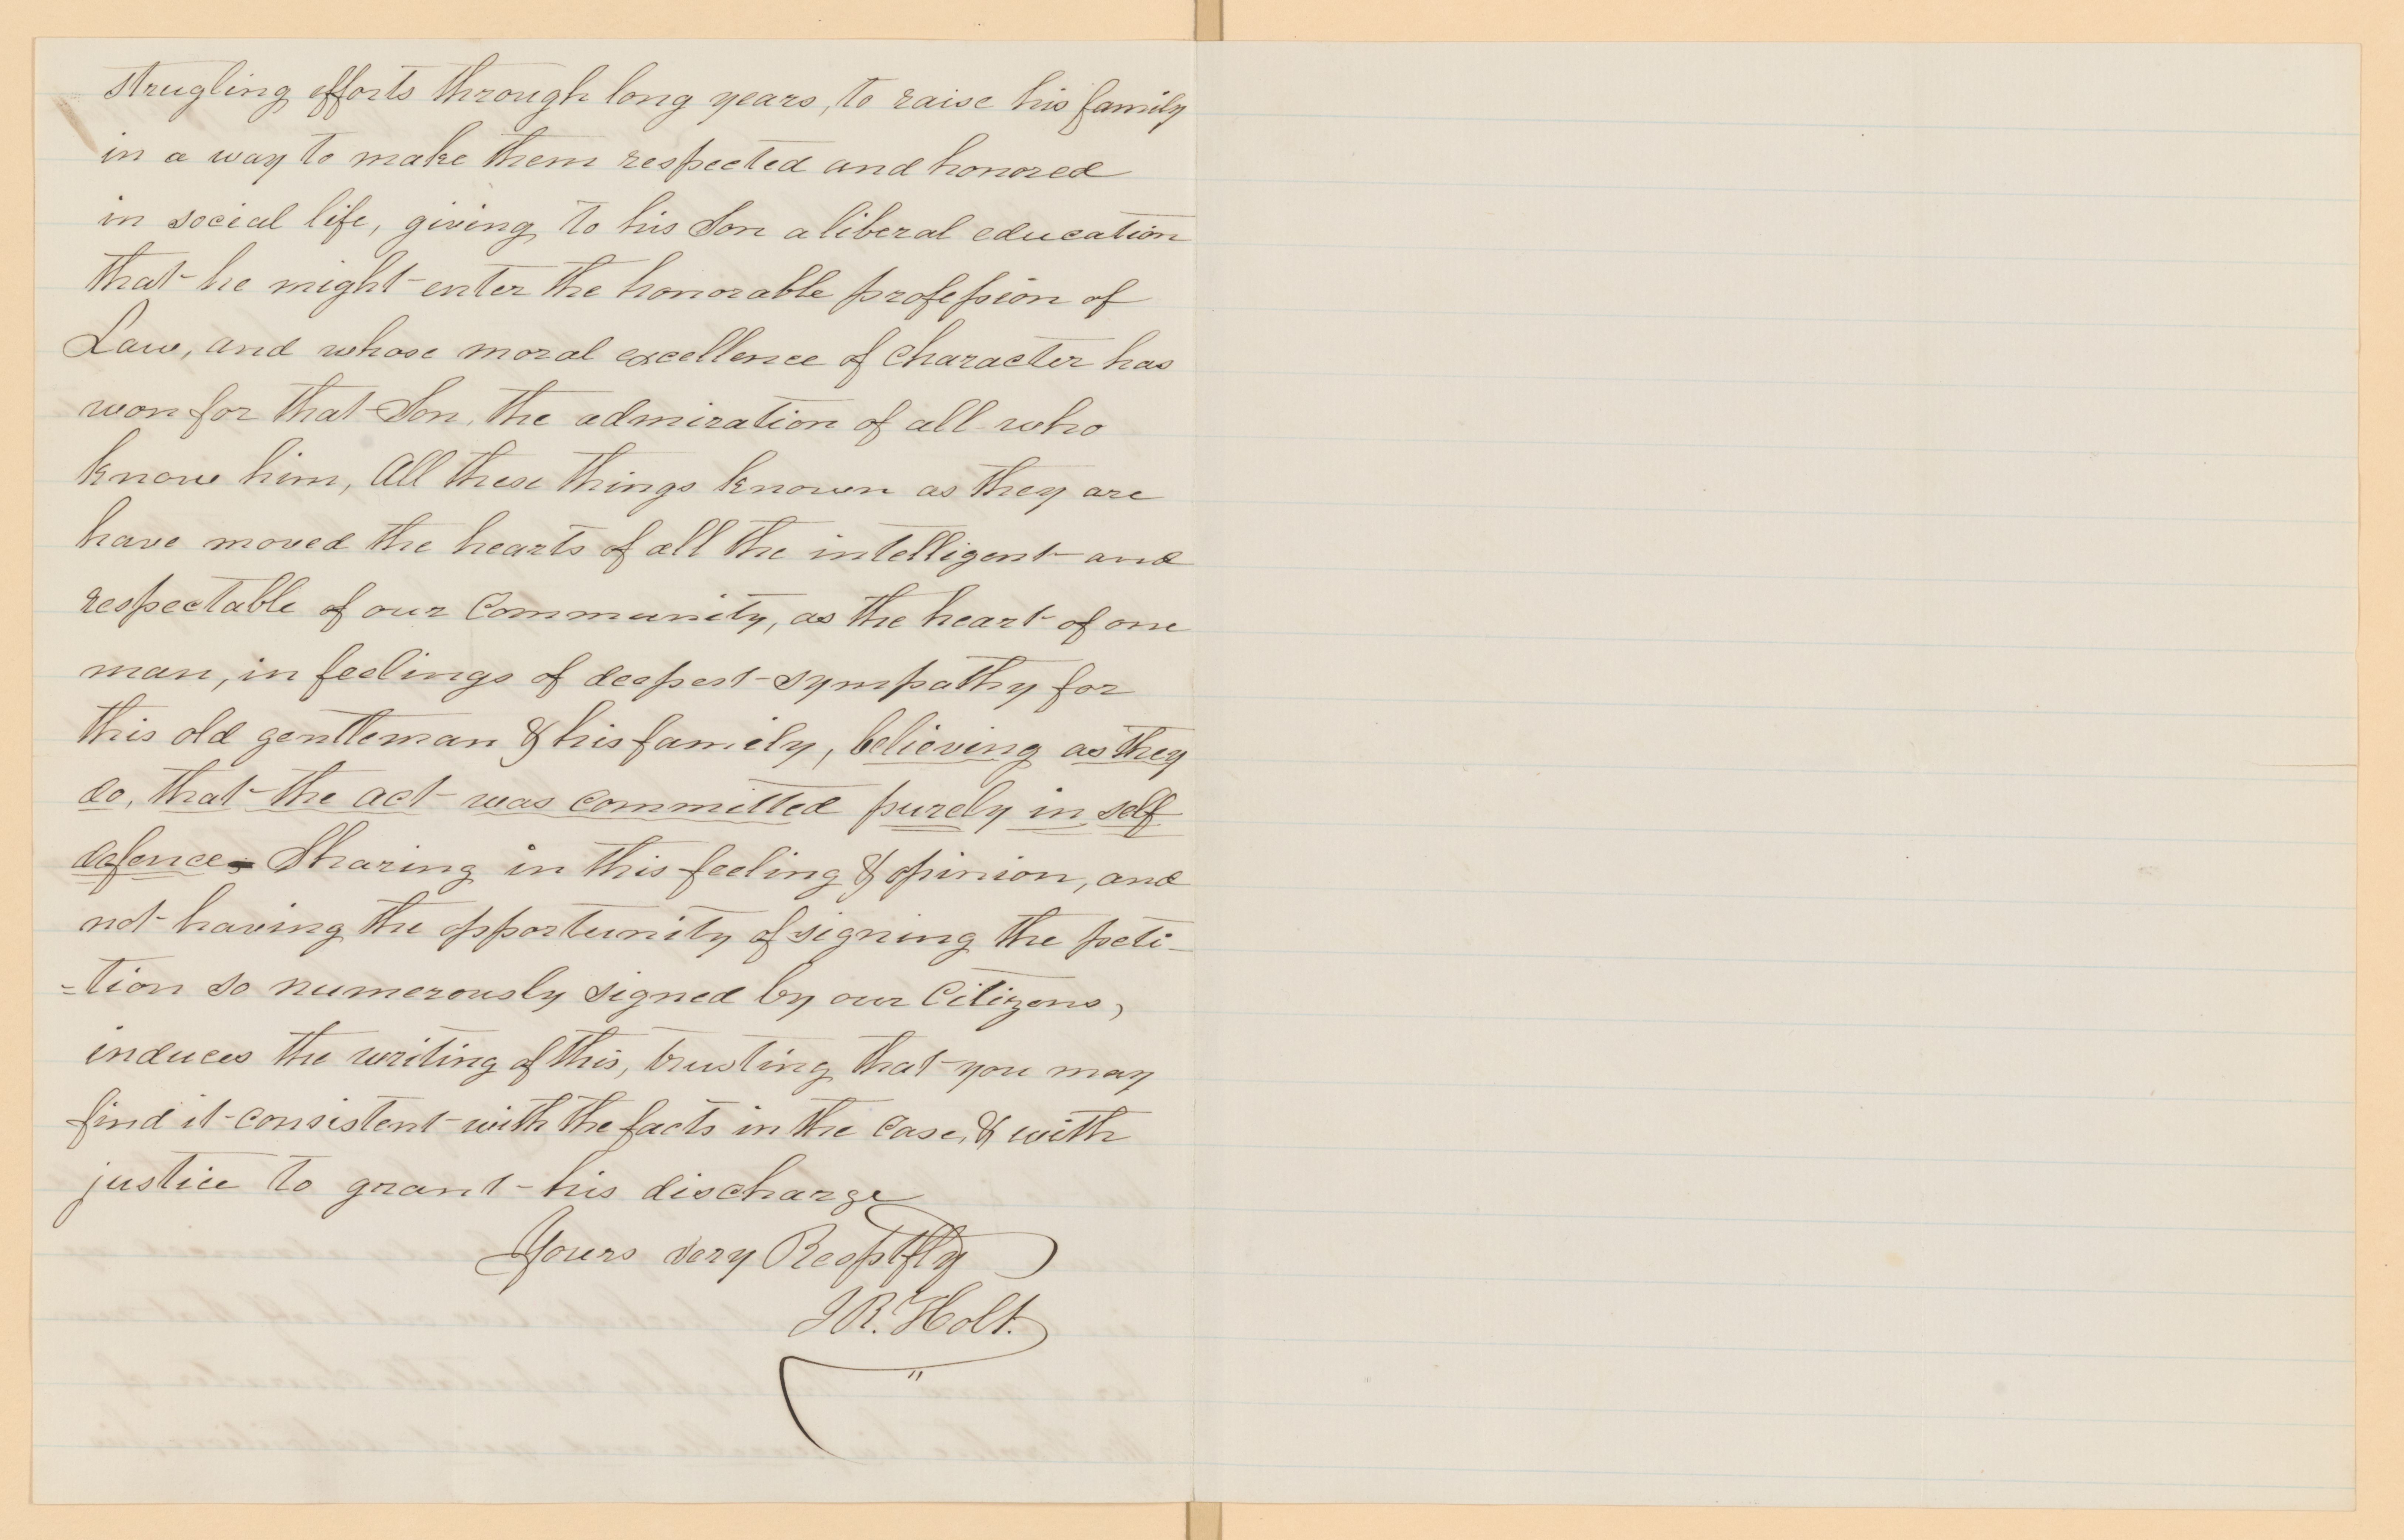 strugling efforts through long years, to raise his family
in a way to make them respected and honored
in social life, giving to his Son a liberal education
that he might enter the honorable profession of
Law, and whose moral excellence of character has
won for that Son, the admiration of all who
know him, All these things known as they are
have moved the hearts of all the intelligent and
respectable of our Community, as the heart of one
man, in feelings of deepest sympathy for
this old gentleman & his family, believing as they
do, that the act was committed purely in self
defence. Sharing in this feeling & opinion, and
not having the opportunity of signing the peti-
-tion so numerously signed by our Citizens,
induces the writing of this, trusting that you may
find it consistent with the facts in the case, & with
justice to grant his discharge
Yours very Resptfly
J R. Holt.
"